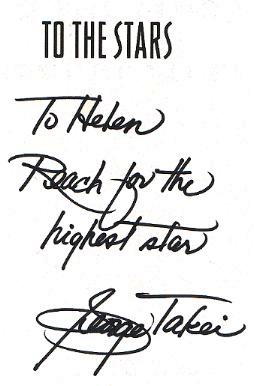 TO THE STARS
To Helen
Reach for the
highest star
George Takei